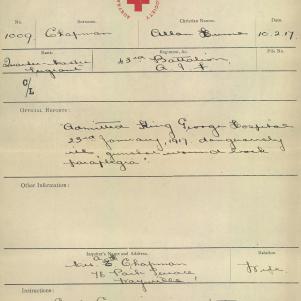 SOCIETY
No. Surname. Christian Names. Date.
1009 Chapman Allan 10.2.17.
Rank: Regiment, &c. File No.
Quarter-Master 43rd Battalion
Sergeant A I F
C/L
OFFICIAL REPORTS:
"Admitted King George Hospital
23rd January, 1917 dangerously
ill, gunshot wound back
paraplegia"
Other Information:
Inquirer's Name and Address. Relation
Mrs Chapman Wife
78 Park Terrace
Wayville
Instructions: